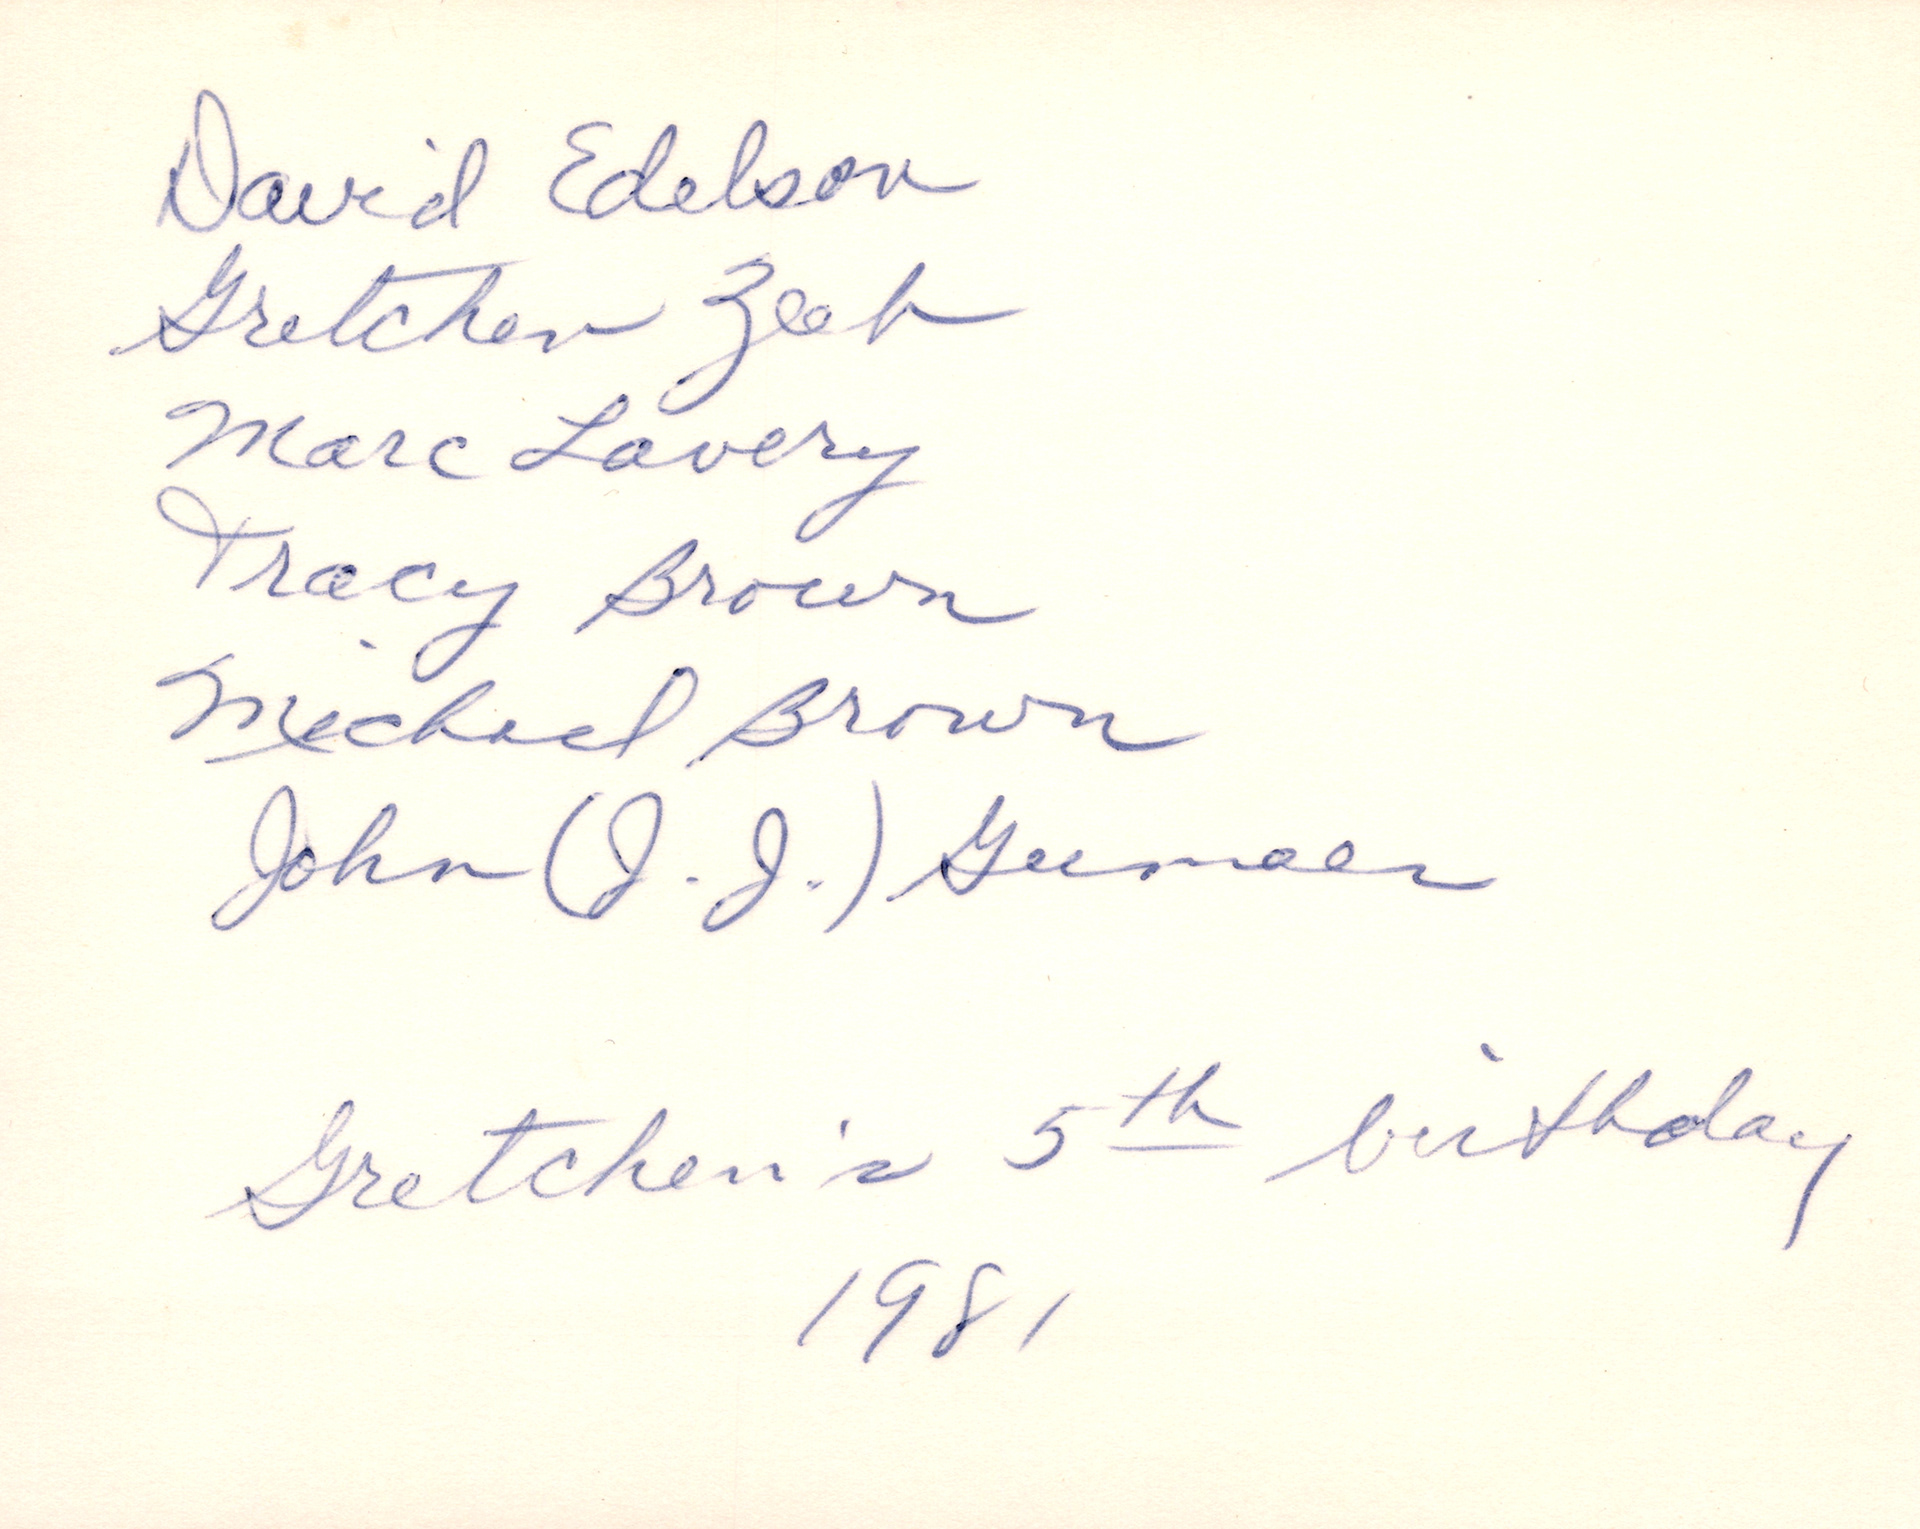 David Edelson
Gretchen Zeeb
Marc Lavery
Tracy Brown
Michael Brown
John (J. J.) Gumaer
Gretchen's 5th birthday
1981